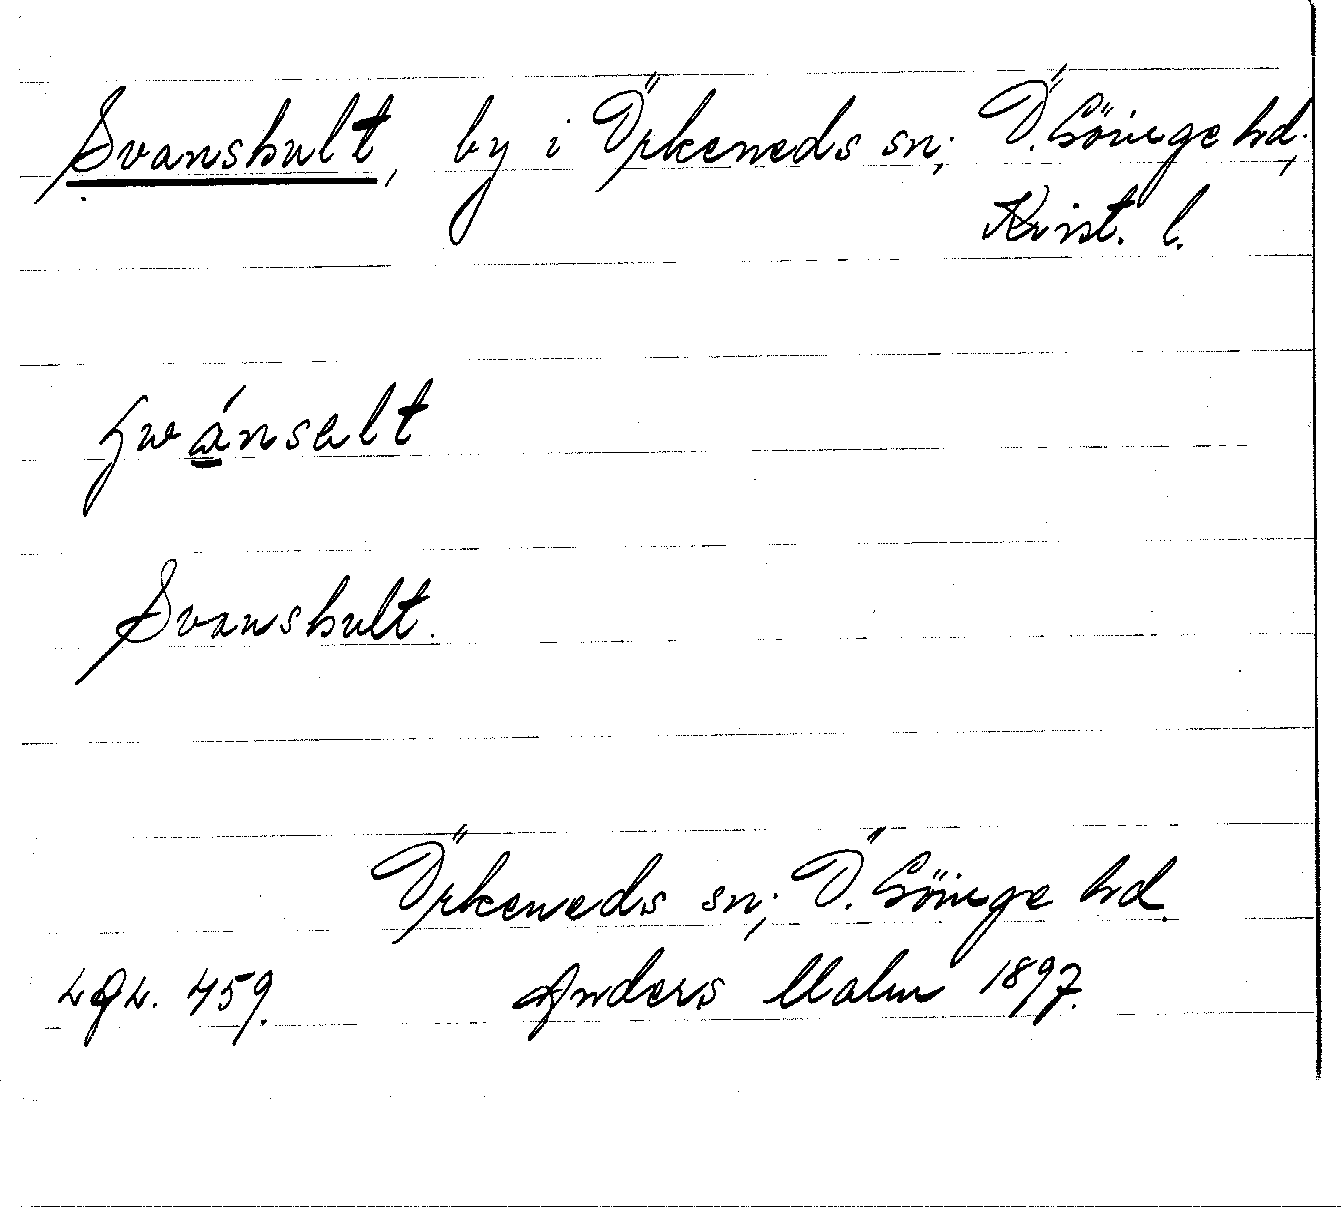 Svanshult, by i Örkeneds sn; Ö. Göinge hd.,
Krist. l.
Svanshult.
Örkeneds sn; Ö. Göinge hd.
LGL. 459. Anders Malm 1897.